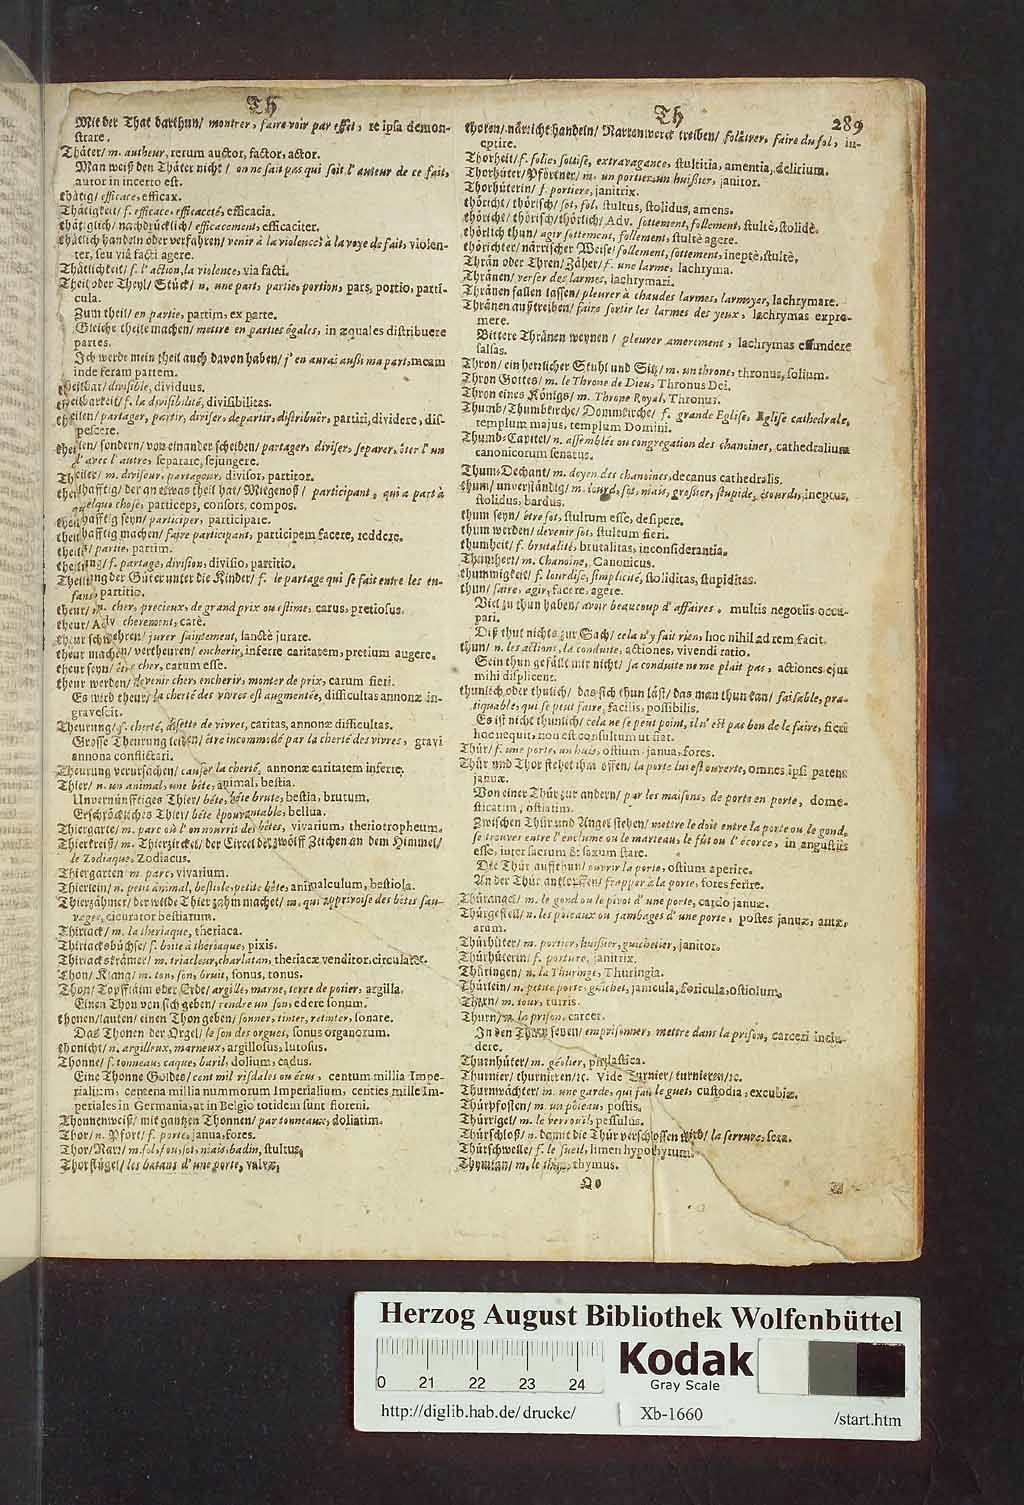 Th
Mit der That darthun/ montrer, faire voir par effet, re ipsa demon-
strare.
Thäter/ m. autheur, rerum auctor, factor, actor.
Man weiß den Thäter nicht/ on ne sait pas qui soit l'auteur de ce fait,
autor in incerto est.
thätig/ efficace, efficax.
Thätigkeit/ f. efficace, efficaceté, efficacia.
thätiglich/ nachdrücklich/ efficacement, efficaciter.
thätlich handeln oder verfahren/ venir à la violence à la voye de fait, violen-
ter, seu viâ facti agere.
Thätlichkeit/ f. l'action, la violence, via facti.
Theil oder Theyl/ Stück/ n. une part, partie, portion, pars, portio, parti-
cula.
Zum theil/ en partie, partim, ex parte.
Gleiche theile machen/ mettre en parties égales, in æquales distribuere
partes.
Ich werde mein theil auch davon haben/ j'en aurai aussi ma part, meam
inde feram partem.
theilbar/ divisible, dividuus.
theilbarkeit/ f. la divisibilité, divisibilitas.
theilen/ partager, partir, diviser, departir, distribuër, partiri, dividere, dis-
pescere.
theilen/ sondern/ von einander scheiden/ partager, diviser, separer, ôter l'un
d'avec l'autre, separare, sejungere.
Theiler/ m. diviseur, partageur, divisor, partitor.
theilhafftig/ der an etwas theil hat/ Mitgenoß/ participant, qui a part à
quelque chose, particeps, consors, compos.
theilhafftig seyn/ participer, participare.
theilhafftig machen/ faire participant, participem facere, reddere.
theils/ partie, partim.
theilung/ f. partage, division, divisio, partitio.
Theilung der Güter unter die Kinder/ f. le partage qui se fait entre les en-
fans, partitio.
theur/ m. cher, precieux, de grand prix ou estime, carus, pretiosus.
theur/ Adv. cherement, carè.
theur schwehren/ jurer saintement, sanctè jurare.
theur machen/ vertheuren/ encherir, inferre caritatem, pretium augere.
theur seyn/ être cher, carum esse.
theur werden/ devenir cher, encherir, monter de prix, carum fieri.
Es wird theur/ la cherté des vivres est augmentée, difficultas annonæ in-
gravescit.
Theurung/ f. cherté, disette de vivres, caritas, annonæ difficultas.
Grosse Theurung leiden/ être incommodé par la cherté des vivres, gravi
annona conflictari.
Theurung verursachen/ causer la cherté, annonæ caritatem inferre.
Thier/ n. un animal, une bête, animal, bestia.
Unvernünfftiges Thier/ bête, bête brute, bestia, brutum.
Erschröckliches Thier/ bête épouvantable, bellua.
Thiergarte/ m. parc où l'on nourrit des bêtes, vivarium, theriotropheum.
Thierkreiß/ m. Thierzirckel/ der Circel der zwölff Zeichen an dem Himmel/
le Zodiaque, Zodiacus.
Thiergarten m. parc, vivarium.
Thierlein/ n. petit animal, bestiole, petite bête, animalculum, bestiola.
Thierzähmer/ der wilde Thier zahm machet/ m. qui apprivoise des bêtes sau-
vages, cicurator bestiarum.
Thiriack/ m. la theriaque, theriaca.
Thiriacksbüchse/ f. boite à theriaque, pixis.
Thiriackskrämer/ m. triacleur, charlatan, theriacæ venditor, circulator.
Thon/ Klang/ m. ton, son, bruit, sonus, tonus.
Thon/ Topffläim oder Erde/ argille, marne, terre de potier, argilla.
Einen Thon von sich geben/ rendre un son, edere sonum.
thonen/ lauten/ einen Thon geben/ sonner, tinter, retinter, sonare.
Das Thonen der Orgel/ le son des orgues, sonus organorum.
thonicht/ n. argilleux, marneux, argillosus, lutosus.
Thonne/ f. tonneau, caque, baril, dolium, cadus.
Eine Thonne Goldes/ cent mil risdales ou écus, centum millia Impe-
rialium, centena millia nummorum Imperialium, centies mille Im-
periales in Germania, at in Belgio totidem sunt floreni.
Thonnenweiß/ mit gantzen Thonnen/ par tonneaux, doliatim.
Thor/ n. Pfort/ f. porte, janua, fores.
Thor/ Narr/ m. fol, fou, sot, niais, badin, stultus.
Thorflügel/ les batans d'une porte, valvæ.
Th 289
thoren/ närricht handeln/ Narrenwerck treiben/ folâtrer, faire du fol, in-
eptire.
Thorheit/ f. folie, sottise, extravagance, stultitia, amentia, delirium.
Thorhüter/ Pförtner/ m. un portier, un huissier, janitor.
Thorhüterin/ f. portiere, janitrix.
thöricht/ thörisch/ sot, fol, stultus, stolidus, amens.
thöricht/ thörisch/ thörlich/ Adv. sottement, follement, stultè, stolidè.
thörlich thun/ agir sottement, follement, stultè agere.
thörichter/ närrischer Weise/ follement, sottement, ineptè, stultè.
Thrän oder Thren/ Zäher/ f. une larme, lachryma.
Thränen/ verser des larmes, lachrymari.
Thränen fallen lassen/ pleurer à chaudes larmes, larmoyer, lachrymare.
Thränen außtreiben/ faire sortir les larmes des yeux, lachrymas expri-
mere.
Bittere Thränen weynen/ pleurer amerement, lachrymas effundere
salsas.
Thron/ ein herrlicher Stuhl und Sitz/ m. un throne, thronus, solium.
Thron Gottes/ m. le Throne de Dieu, Thronus Dei.
Thron eines Königs/ m. Throne Royal, Thronus.
Thumb/ Thumbkirche/ Dommkirche/ f. grande Eglise, Eglise cathedrale,
templum majus, templum Domini.
Thumb-Capitel/ n. assemblée ou congregation des chanoines, cathedralium
canonicorum senatus.
Thum-Dechant/ m. doyen des chanoines, decanus cathedralis.
thum/ unverständig/ m. lourd, sot, niais, grossier, stupide, étourdi, ineptus,
stolidus, bardus.
thum seyn/ être sot, stultum esse, desipere.
thum werden/ devenir sot, stultum fieri.
thumheit/ f. brutalité, brutalitas, inconsiderantia.
Thumherr/ m. Chanoine, Canonicus.
thummigkeit/ f. lourdise, simplicité, stoliditas, stupiditas.
thun/ faire, agir, facere, agere.
Viel zu thun haben/ avoir beaucoup d'affaires, multis negotiis occu-
pari.
Diß thut nichts zur Sach/ cela n'y fait rien, hoc nihil ad rem facit.
thun/ n. les actions, la conduite, actiones, vivendi ratio.
Sein thun gefällt mir nicht/ sa conduite ne me plait pas, actiones ejus
mihi displicent.
thunlich oder thulich/ das sich thun läst/ das man thun kan/ faisable, pra-
tiquable, qui se peut faire, facilis, possibilis.
Es ist nicht thunlich/ cela ne se peut point, il n'est pas bon de le faire, fieri
hoc nequit, non est consultum ut fiat.
Thür/ f. une porte, un huis, ostium, janua, fores.
Thür und Thor stehet ihm offen/ la porte lui est ouverte, omnes ipsi patent
januæ.
Von einer Thür zur andern/ par les maisons, de porte en porte, dome-
sticatim, ostiatim.
Zwischen Thür und Angel stehen/ mettre le doit entre la porte ou le gond,
se trouver entre l'enclume ou le marteau, le fût ou l'écorce, in angustiis
esse, inter sacrum & saxum stare.
Die Thür auffthun/ ouvrir la porte, ostium aperire.
An der Thür anklopffen/ frapper à la porte, fores ferire.
Thürangel/ m. le gond ou le pivot d'une porte, cardo januæ.
Thürgestell/ n. les poteaux ou jambages d'une porte, postes januæ, antæ-
arum.
Thürhüter/ m. portier, huissier, guichetier, janitor.
Thürhüterin/ f. portiere, janitrix.
Thüringen/ n. la Thuringe, Thuringia.
Thürlein/ n. petite porte, guichet, janicula, foricula, ostiolum.
Thurn/ m. tour, turris.
Thurn/ m. la prison, carcer.
In den Thurn setzen/ emprisonner, mettre dans la prison, carceri inclu-
dere.
Thurnhüter/ m. géolier, phylastica.
Thurnier/ thurnieren/ ꝛc. Vide Turnier/ turnieren/ ꝛc.
Thurnwächter/ m. une garde, qui fait le guet, custodia, excubiæ.
Thürpfosten/ m. un pôteau, postis.
Thürrigel/ m. le verrouil, pessulus.
Thürschloß/ n. damit die Thür verschlossen wird/ la serrure, sera.
Thürschwelle/ f. le sueil, limen hypothyrum.
Thymian/ m. le thym, thymus.
Oo
Herzog August Bibliothek Wolfenbüttel
0 21 22 23 24
Kodak
Gray Scale
http://diglib.hab.de/drucke/
Xb-1660
/start.htm